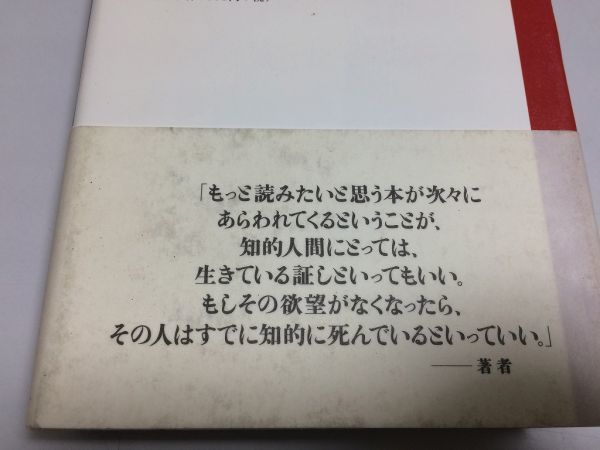 「もっと読みたいと思う本が次々に
あらわれてくるということが、
知的人間にとっては、
生きている証しといってもいい。
もしその欲望がなくなったら、
その人はすでに知的に死んでいるといっていい。」
──著者